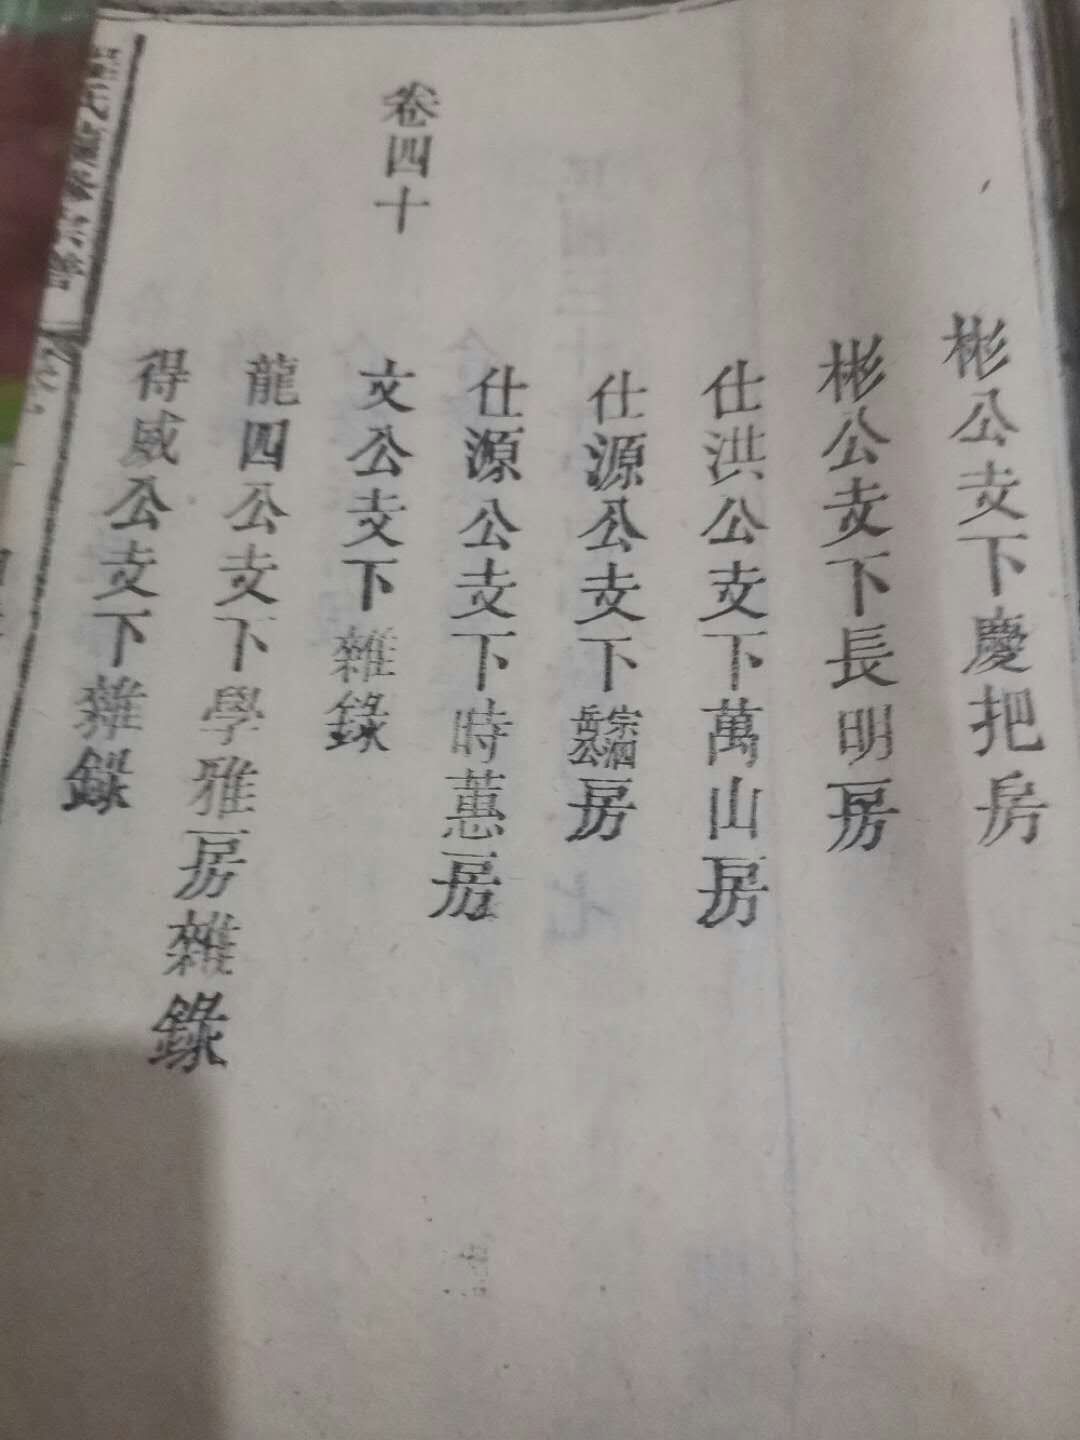 彬公支下慶把房
彬公支下長明房
仕洪公支下萬山房
仕源公支下宗泗岳公房
仕源公支下時蕙房
卷四十
文公支下雜錄
龍四公支下學雅房雜錄
得威公支下雜錄
氏續修宗譜